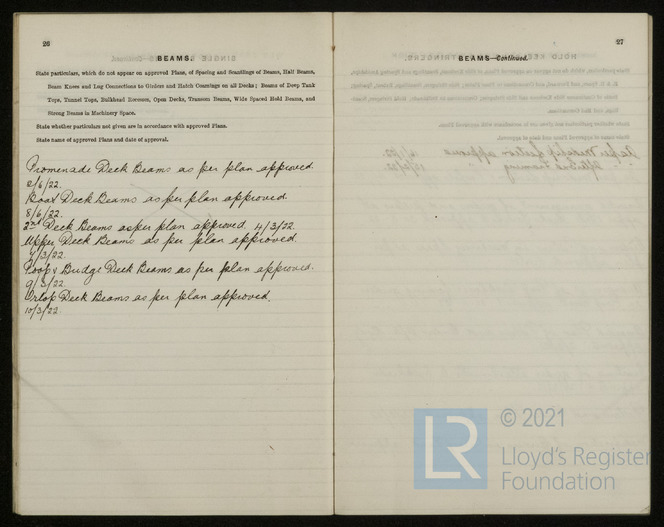 26
BEAMS.
State particulars, which do not appear on approved Plans, of Spacing and Scantlings of Beams, Half Beams,
Beam Knees and Lug Connections to Girders and Hatch Coamings on all Decks; Beams of Deep Tank
Tops, Tunnel Tops, Bulkhead Recesses, Open Decks, Transom Beams, Wide Spaced Hold Beams, and
Strong Beams in Machinery Space.
State whether particulars not given are in accordance with approved Plans.
State name of approved Plans and date of approval.
Promenade Deck Beams as per plan approved
2/6/22.
Boat Deck Beams as per plan approved.
8/6/22.
2nd Deck Beams as per plan approved. 4/3/22
Upper Deck Beams as per plan approved.
7/3/22.
Poop & Bridge Deck Beams as per plan approved.
9/3/22
Orlop Deck Beams as per plan approved.
10/3/22
27
BEAMS—Continued.
LR
© 2021
Lloyd's Register
Foundation